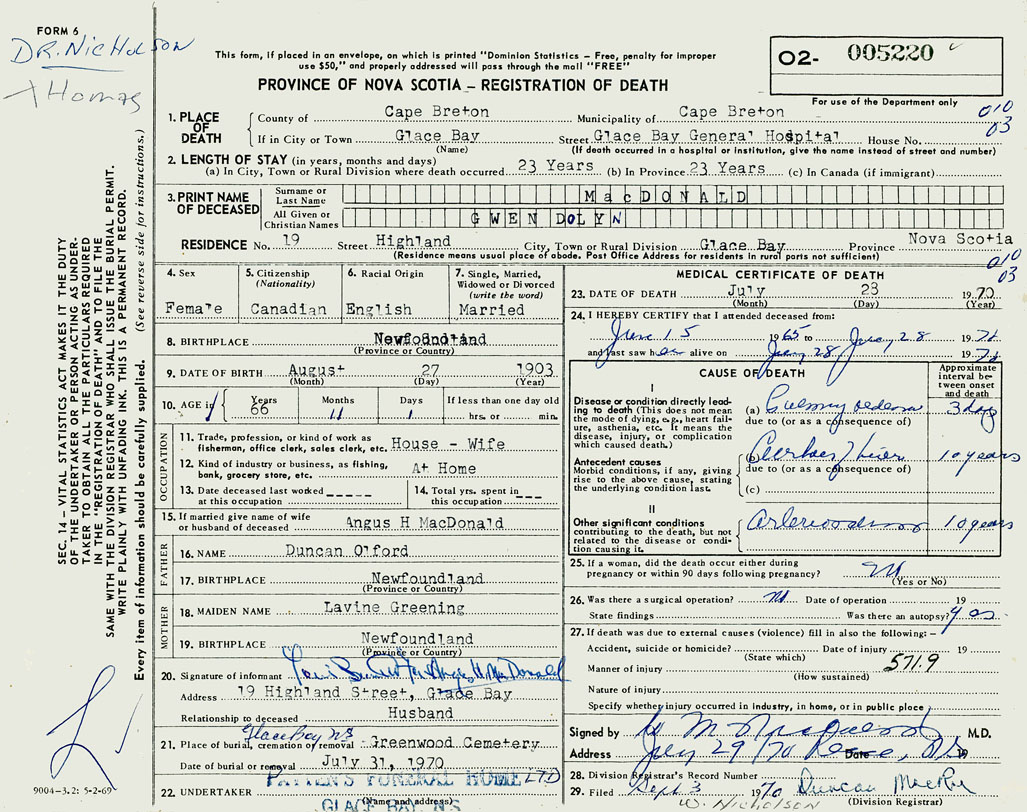 FORM 6
DR. NicHolson
Thomas
This form, if placed in an envelope, on which is printed "Dominion Statistics – Free, penalty for improper
use $50," and properly addressed will pass through the mail "FREE"
PROVINCE OF NOVA SCOTIA – REGISTRATION OF DEATH
02- 005220
For use of the Department only
010
03
1. PLACE OF DEATH
County of Cape Breton Municipality of Cape Breton
If in City or Town Glace Bay Street Glace Bay General Hospital House No.
(Name) (If death occurred in a hospital or institution, give the name instead of street and number)
2. LENGTH OF STAY (in years, months and days)
(a) In City, Town or Rural Division where death occurred 23 Years (b) In Province 23 Years (c) In Canada (if immigrant)
3. PRINT NAME OF DECEASED
Surname or Last Name MacDONALD
All Given or Christian Names GWENDOLYN
RESIDENCE No. 19 Street Highland City, Town or Rural Division Glace Bay Province Nova Scotia
(Residence means usual place of abode. Post Office Address for residents in rural parts not sufficient)
010
03
4. Sex
Female
5. Citizenship
(Nationality)
Canadian
6. Racial Origin
English
7. Single, Married,
Widowed or Divorced
(write the word)
Married
8. BIRTHPLACE Newfoundland
(Province or Country)
9. DATE OF BIRTH August 27 1903
(Month) (Day) (Year)
10. AGE in Years Months Days If less than one day old
66 11 1 hrs. or min.
OCCUPATION
11. Trade, profession, or kind of work as
fisherman, office clerk, sales clerk, etc. House - Wife
12. Kind of industry or business, as fishing,
bank, grocery store, etc. At Home
13. Date deceased last worked
at this occupation
14. Total yrs. spent in
this occupation
15. If married give name of wife
or husband of deceased Angus H MacDonald
FATHER
16. NAME Duncan Olford
17. BIRTHPLACE Newfoundland
(Province or Country)
MOTHER
18. MAIDEN NAME Lavine Greening
19. BIRTHPLACE Newfoundland
(Province or Country)
20. Signature of informant Angus H. MacDonald
Address 19 Highland Street, Glace Bay
Relationship to deceased Husband
Glace Bay NS
21. Place of burial, cremation or removal Greenwood Cemetery
Date of burial or removal July 31, 1970
22. UNDERTAKER PATTEN'S FUNERAL HOME LTD
(Name and address)
GLACE BAY, N.S.
MEDICAL CERTIFICATE OF DEATH
23. DATE OF DEATH July 28 1970
(Month) (Day) (Year)
24. I HEREBY CERTIFY that I attended deceased from:
June 15 1965 to July 28 1970
and last saw her alive on July 28 1970
CAUSE OF DEATH
Approximate interval between onset and death
I
Disease or condition directly leading
to death (This does not mean
the mode of dying, e.g., heart failure,
asthenia, etc. It means the
disease, injury, or complication
which caused death.)
(a) 3 days
due to (or as a consequence of)
Antecedent causes
Morbid conditions, if any, giving
rise to the above cause, stating
the underlying condition last.
(b) 10 years
due to (or as a consequence of)
(c)
II
Other significant conditions
contributing to the death, but not
related to the disease or condition
causing it.
10 years
25. If a woman, did the death occur either during
pregnancy or within 90 days following pregnancy? No
(Yes or No)
26. Was there a surgical operation? No Date of operation 19
State findings Was there an autopsy? Yes
27. If death was due to external causes (violence) fill in also the following: –
Accident, suicide or homicide? Date of injury 19
(State which)
571.9
Manner of injury
(How sustained)
Nature of injury
Specify whether injury occurred in industry, in home, or in public place
Signed by M.D.
Address July 29/70 Date 19
28. Division Registrar's Record Number
29. Filed Sept. 3 1970 Duncan MacRae
(Division Registrar)
W. Nicholson
SEC. 14 – VITAL STATISTICS ACT MAKES IT THE DUTY
OF THE UNDERTAKER OR PERSON ACTING AS UNDERTAKER
TO OBTAIN ALL THE PARTICULARS REQUIRED
IN THE "REGISTRATION OF DEATH" AND TO FILE THE
SAME WITH THE DIVISION REGISTRAR WHO SHALL ISSUE THE BURIAL PERMIT.
WRITE PLAINLY WITH UNFADING INK. THIS IS A PERMANENT RECORD.
Every item of information should be carefully supplied. (See reverse side for instructions.)
9004–3.2: 5-2-69